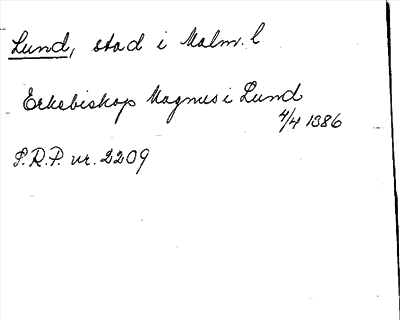 Lund, stad i Malm. l
Erkebiskop Magnus i Lund
4/4 1386
S.R.P. nr. 2209